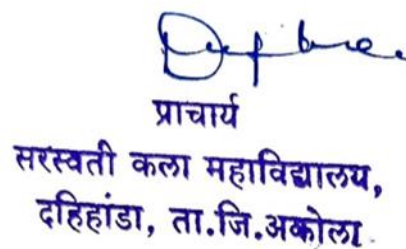 प्राचार्य
सरस्वती कला महाविद्यालय,
दहिहांडा, ता.जि.अकोला